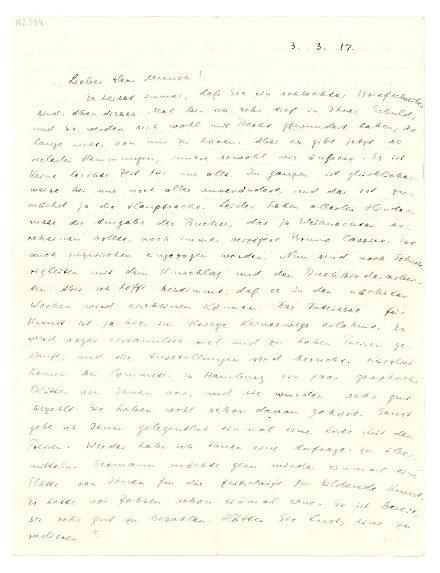 K2374
3. 3. 17.
Lieber Herr Munch!
Es heisst immer, daß Sie ein schlechter Briefschreiber
sind. Aber dieses Mal bin ich sehr tief in Ihrer Schuld,
und Sie werden sich wohl mit Recht gewundert haben, so
lange nichts von mir zu hören. Aber es gibt jetzt so
vielerlei Hemmungen, innere sowohl wie äußere. Es ist
keine leichte Zeit für uns alle. Im ganzen ist glücklicher-
weise bei uns noch alles unverändert, und das ist zu-
nächst ja die Hauptsache. Leider haben allerlei Hinder-
nisse die Ausgabe des Buches, das ja Weihnachten er-
scheinen sollte, noch immer verzögert. Bruno Cassirer ist
auch inzwischen eingezogen worden. Nun sind noch Schwie-
rigkeiten mit dem Umschlag und den
Aber ich hoffe bestimmt, daß er in den nächsten
Wochen wird erscheinen können. Das Interesse für
Kunst ist ja hier im Kriege keineswegs erlahmt. Es
wird sogar erstaunlich viel und zu hohen Preisen ge-
kauft, und die Ausstellungen sind besucht.
kamen bei Commeter in Hamburg ein paar graphische
Blätter von Ihnen vor, und sie wurden sehr gut
bezahlt. Sie haben wohl schon davon gehört. Sonst
gebe ich Ihnen gelegentlich einmal eine Liste mit den
Preisen. Wieder habe ich Ihnen eine Anfrage zu über-
mitteln. Seemann möchte gern wieder einmal eine
Platte von Ihnen für die Zeitschrift für bildende Kunst.
Er hatte vor Jahren schon einmal eine. Er ist bereit,
sie sehr gut zu bezahlen. Hätten Sie Lust, eine zu
radieren?